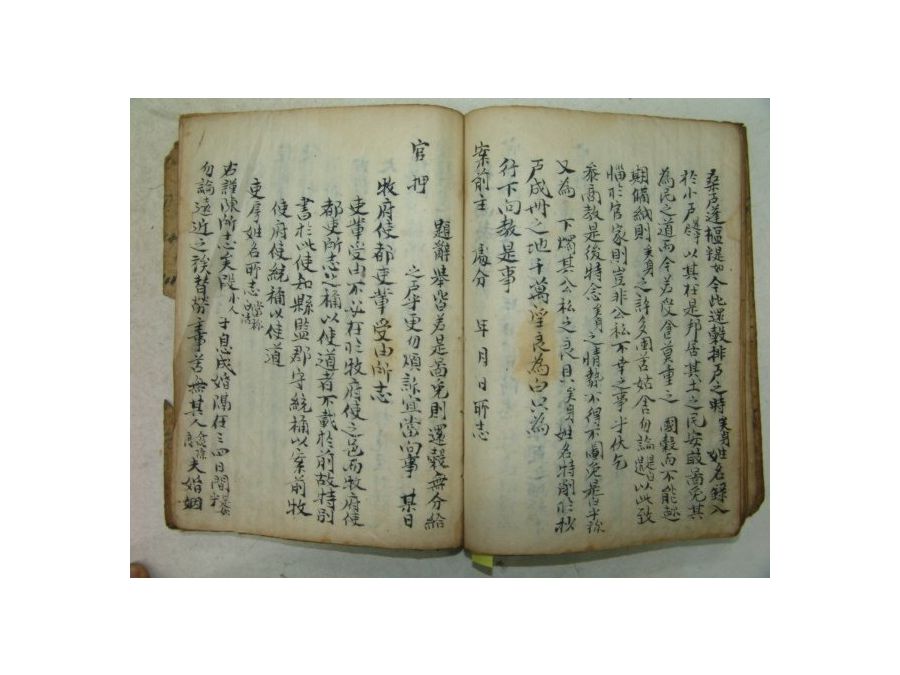 桑戶蓬樞是如今此還穀排戶之時矣身姓名錄入
於小戶飭以其在是邦居其土之民安敢圖免其
為民之道而今若受食莫重之 國穀而不能趂
期備納則矣身之許多困苦姑舍勿論是遣以此致
惱於官家則豈非公私不幸之事乎伏乞
叅商敎是後特念矣身之情勢不得不圖免是白乎旀
又為 下燭其公私之良貝矣身姓名特削於抄
戶成冊之地千萬望良為白只為
行下向敎是事
案前主 處分 年 月 日 所志
題辭擧皆若是啚免則還穀無分給
之戶乎更勿煩訴宜當向事 某日
官 押
牧府使都吏輩受由所志
吏輩受由不必在於牧府使之邑而牧府使
都吏所志之稱以使道者不載於前故特別
書於此使知縣監郡守統稱以案前牧
使府使統稱以使道
吏房姓名所志
右謹陳所志矣段小人子息成婚隔在三四日間
勿論遠近之族替勞主事苦無其人 夫婚姻